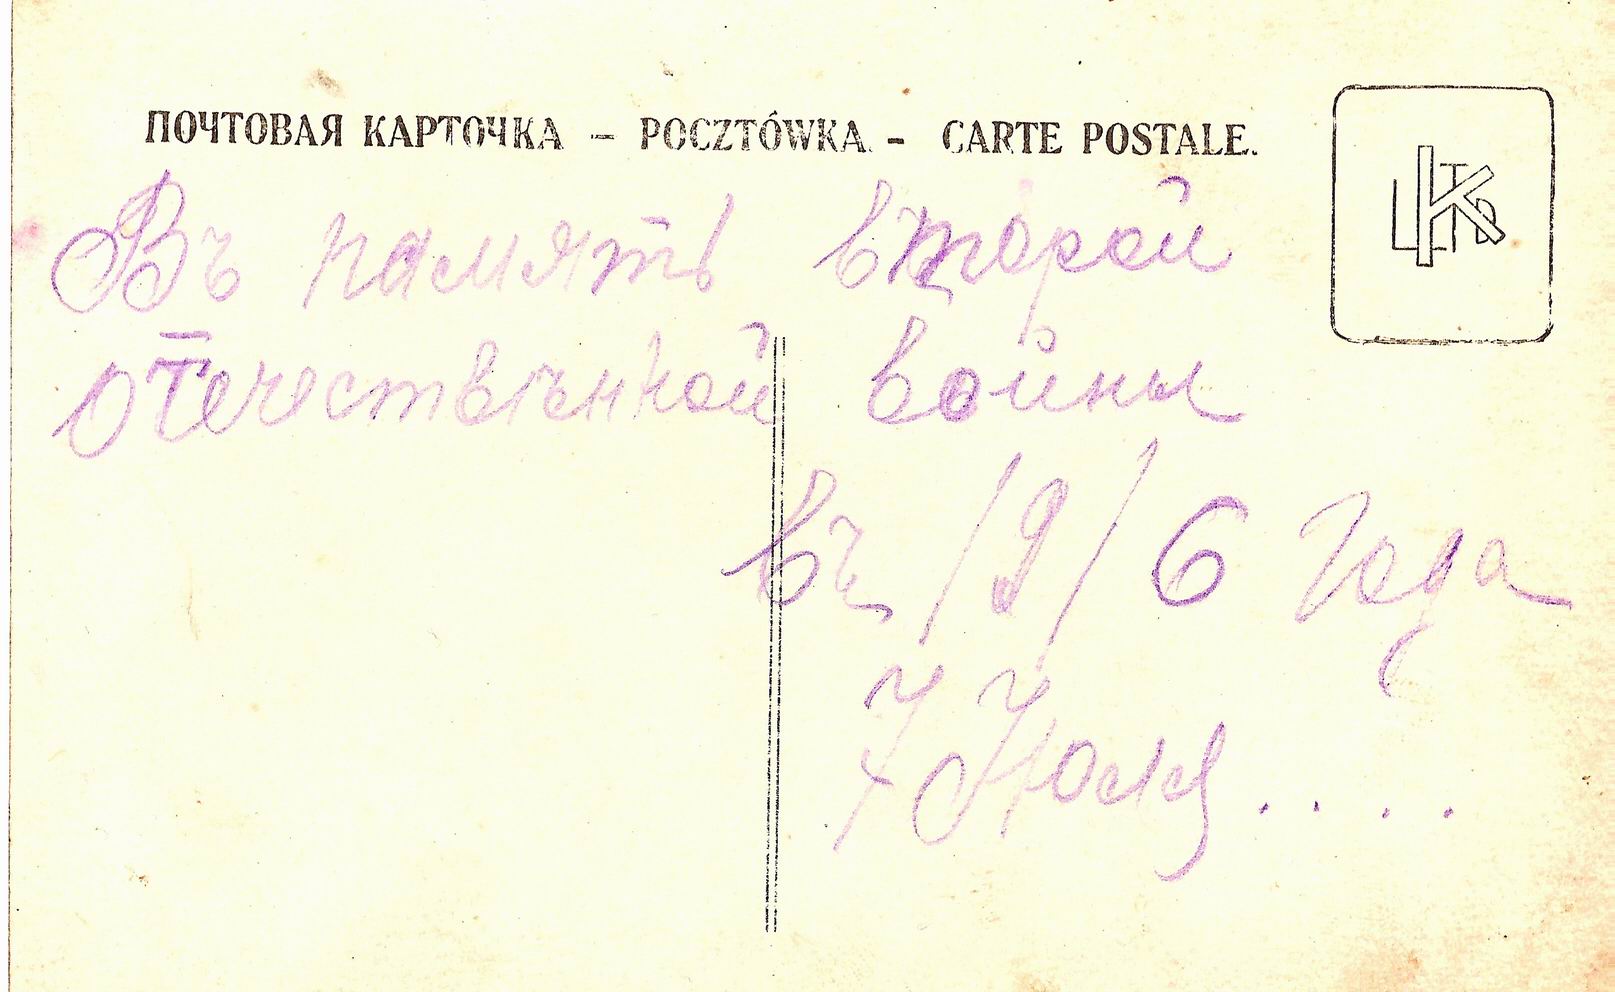 ПОЧТОВАЯ КАРТОЧКА – POCZTÓWKA. – CARTE POSTALE.
Въ память второй
отечественной войны
въ 1916 года
7 Июля....